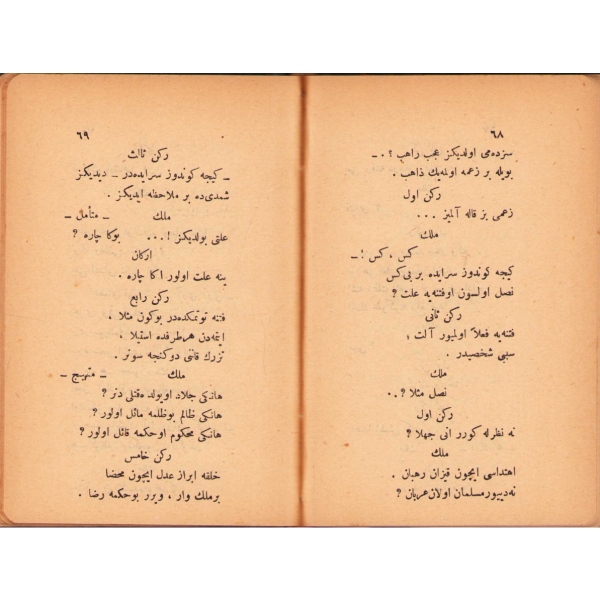 ٦٨
سزده‌می اولدیكز عجب راهب ؟ . ـ
بویله بر زعمه اولمه‌یك ذاهب .
ركن اول
زعمی بز قاله آلمیز ...
ملك
كس ، كس ! ـ
كیجه كوندوز سرایده بر بی‌كس
نصل اولسون اوفتنه‌یه علت ؟
ركن ثانی
فتنه‌یه فعلاً اولمیور آلت ؛
سببی شخصیدر .
ملك
نصل مثلا ؟ . .
ركن اول
نه نظرله كورر انی جهلا ؟
ملك
اهتداسی ایچون قیزان رهبان .
نه دییور مسلمان اولان عربان ؟
٦٩
ركن ثالث
ـ كیجه كوندوز سرایده‌در ـ دیدیكز
شمدی‌ده بر ملاحظه ایدیكز .
ملك ـ متأمل ـ
علتی بولدیكز ! ... بوكا چاره ؟
اركان
ینه علت اولور اكا چاره .
ركن رابع
فتنه توتمكده‌در بوكون مثلا .
ایتمه‌دن هر طرفده استیلا .
تزرك قانی دوكنجه سونر .
ملك ـ متهیج ـ
هانكی جلاد اویولده قتلی دنر ؟
هانكی ظالم بوظلمه مائل اولور ؟
هانكی محكوم اوحكمه قائل اولور ؟
ركن خامس
خلقه ابراز عدل ایچون محضا
برملك وار ، ویرر بوحكمه رضا .